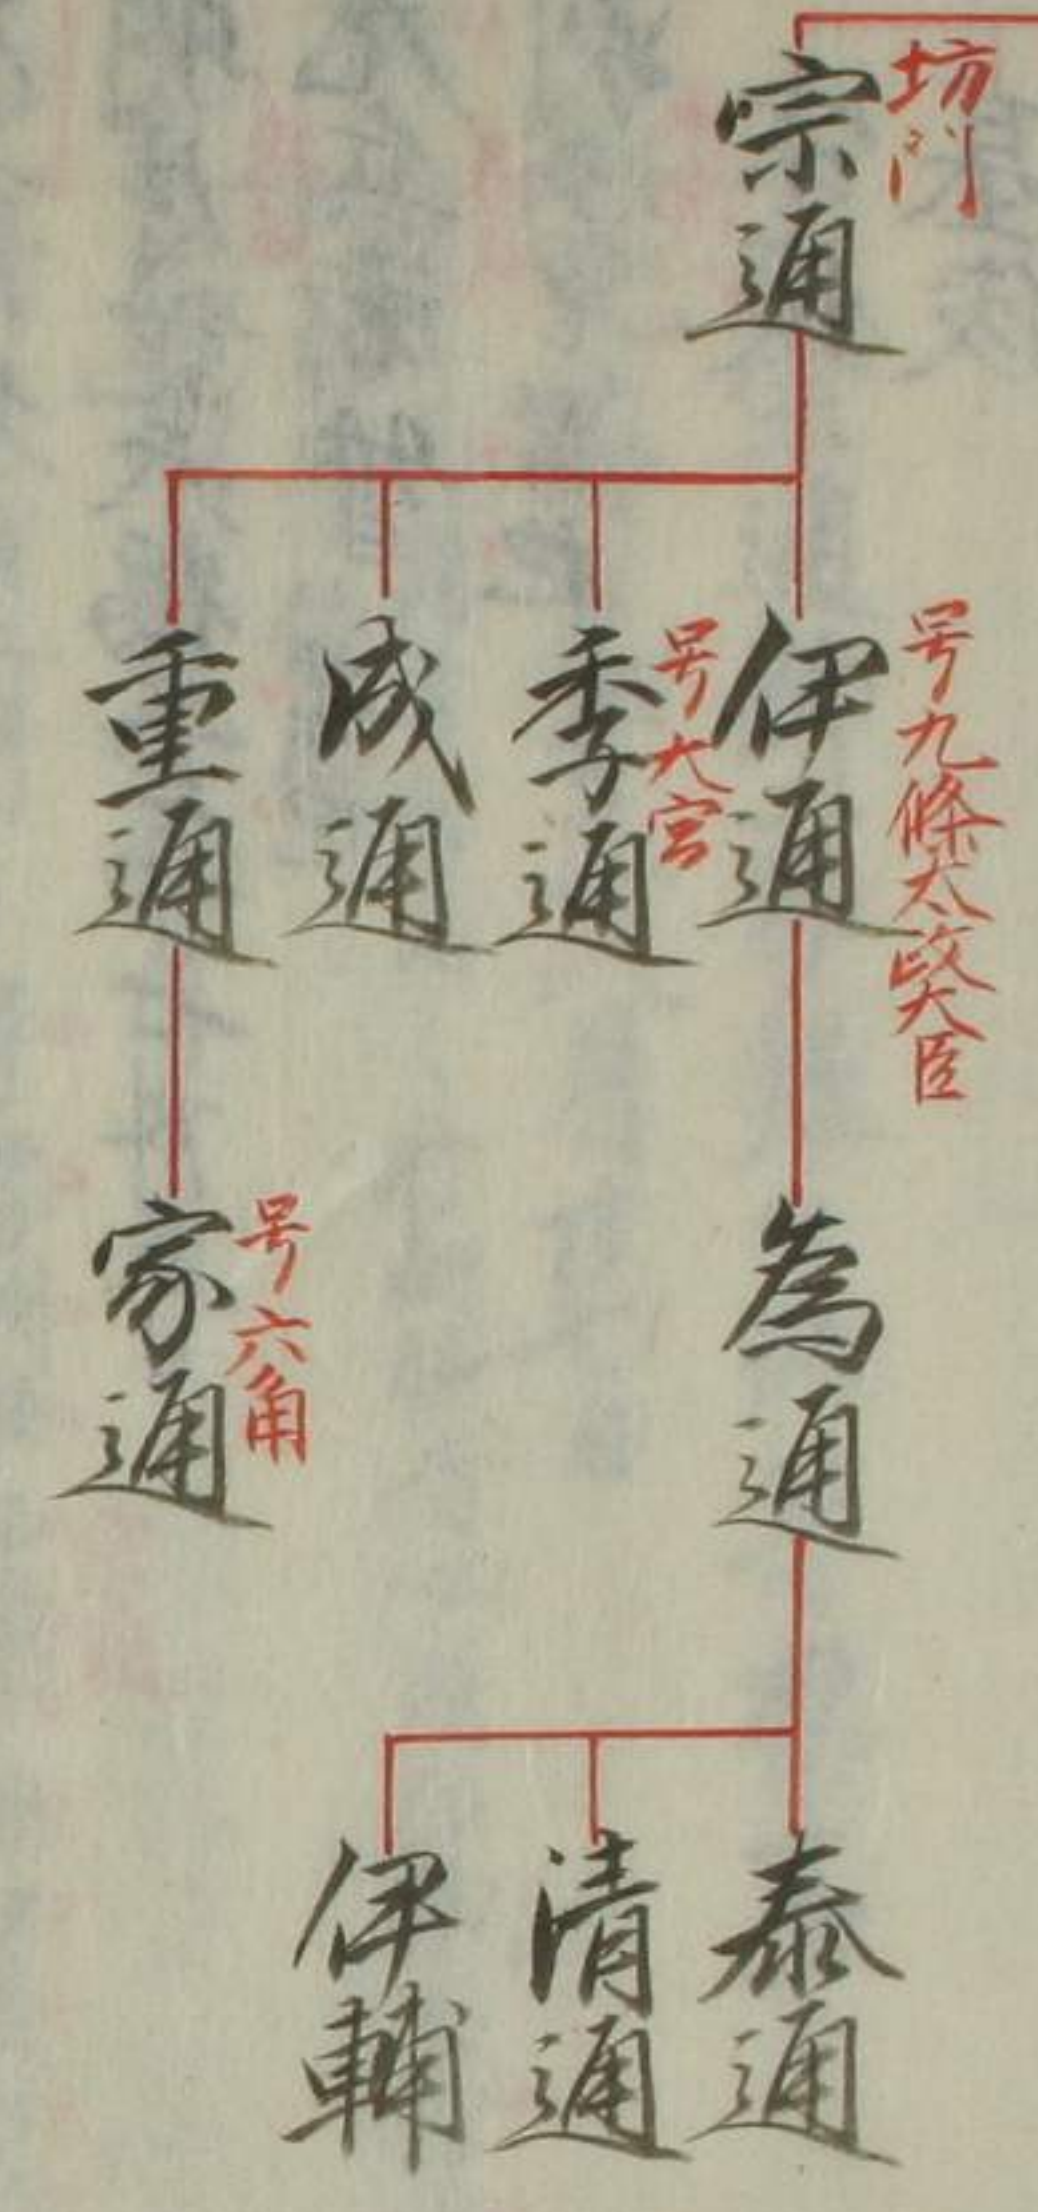 坊門
宗通
号九條太政大臣
伊通
号大宮
季通
成通
重通
為通
号六角
家通
泰通
清通
伊輔